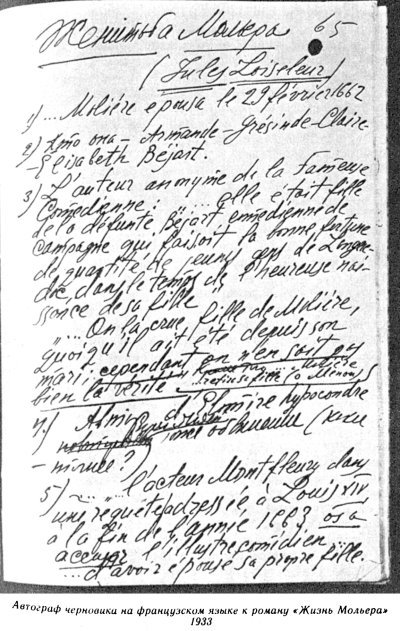 Женитьба Мольера 65
(Jules Loiseleur)
1) ... Molière épousa le 29 février 1662
2) Кто она – Armande-Grésinde-Claire-
Elisabeth Béjart.
3) L'auteur anonyme de la Fameuse
Comédienne: "... elle était fille
de la défunte Béjart comédienne de
campagne qui faisoit la bonne fortune
de quantité de jeunes gens de Langue-
doc, dans le temps de l'heureuse nais-
sance de sa fille
"... On la crue fille de Molière,
quoiqu'il ait été depuis son
mari, cependant on n'en sait pas
bien la vérité
4) Elmire hypocondre
5) ... l'acteur Montfleury dans
une requête adressée à Louis XIV
à la fin de l'année 1663 osa
accuser l'illustre comédien ...
... d'avoir épousé sa propre fille.
Автограф черновика на французском языке к роману «Жизнь Мольера»
1933